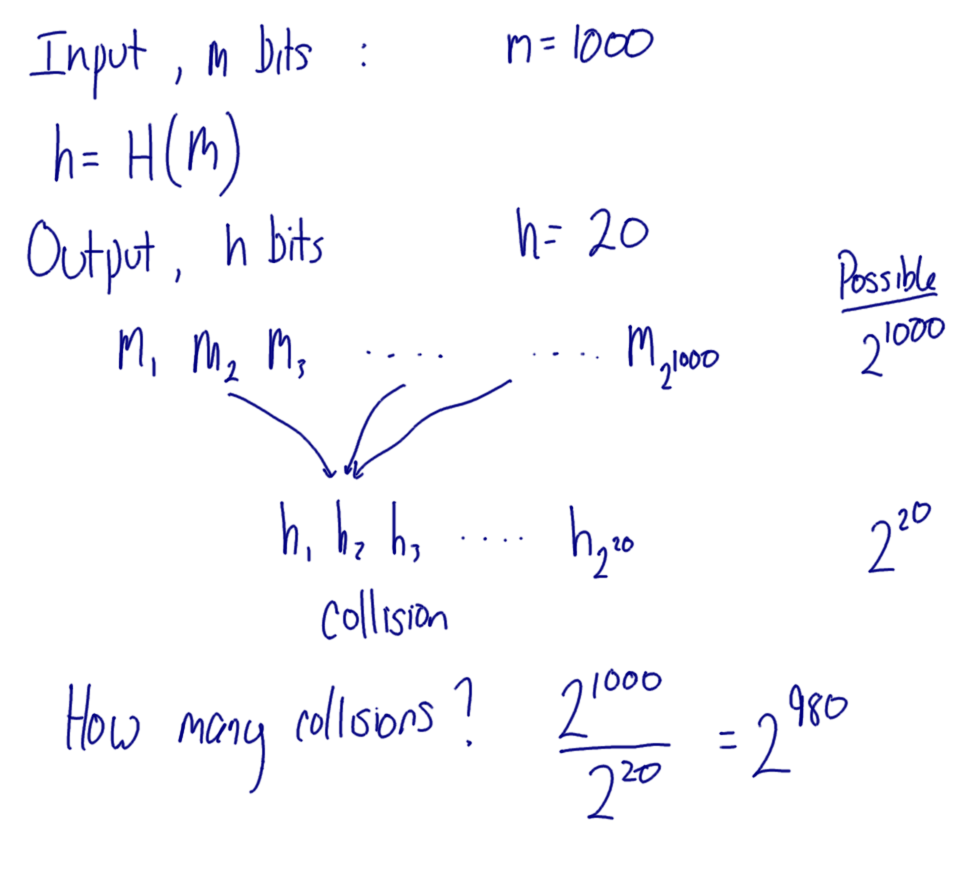 Input, m bits : m = 1000
h = H(m)
Output, h bits h = 20
Possible
m₁ m₂ m₃ .... .... m_2^1000 2^1000
h₁ h₂ h₃ .... h_2^20 2^20
Collision
How many collisions? 2^1000 / 2^20 = 2^980